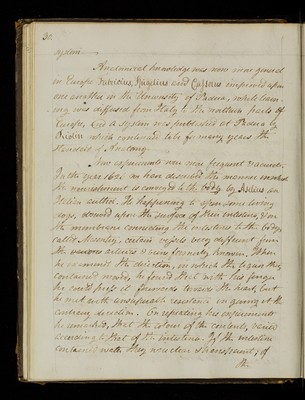 30.
system
Anatomical knowledge was now more general
in Europe Fabricius, Spigelius and Casserius improved upon
one another in the University of Padua, while learn-
ing was diffused from Italy to the northern parts of
Europe, and a system was published at Padua by
which continued to be for many years the
Standard of Anatomy.
New experiments were now frequent
In the year 1622 we have described the manner in which
the nourishment is conveyed to the body by Asellius an
Italian author. He happening to open some living
dogs, observed upon the surface of their intestines, & on
the membrane connecting the intestines to the body,
called Mesentery, certain vessels very different from
the various arteries & veins formerly known. When
he examined the direction, in which the liquor they
contained moved, he found that with his finger
he could press it forwards towards the heart, but
he met with considerable resistance in giving it the
contrary direction. On repeating his experiments
he remarked, that the colour of the contents, varied
according to that of the intestine. If the intestine
contained milk they were clear & transparent; if
the